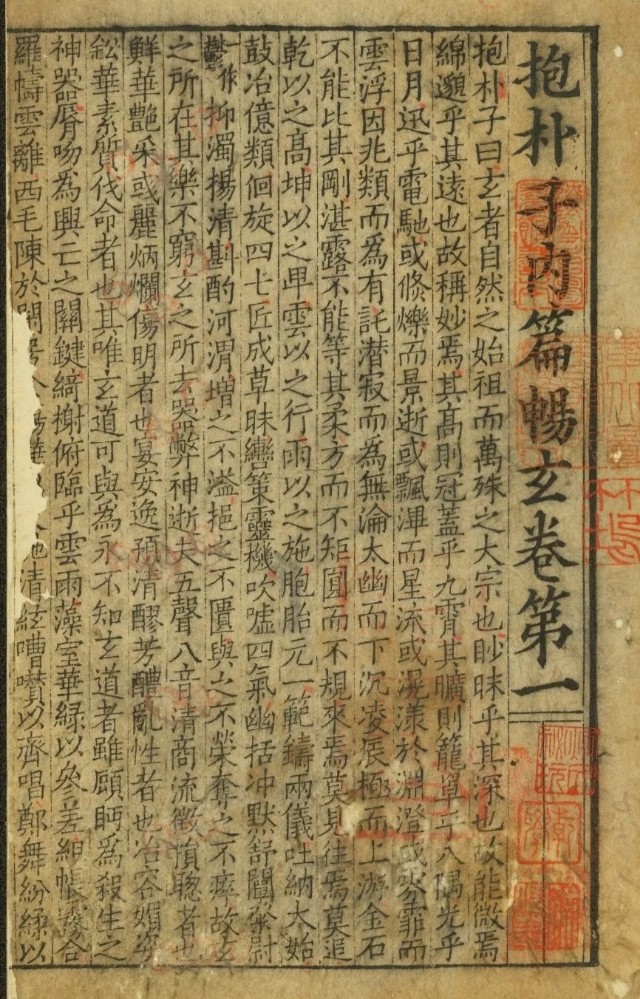 抱朴子內篇暢玄卷第一
抱朴子曰玄者自然之始祖而萬殊之大宗也眇昧乎其深也故能微焉
綿邈乎其遠也故稱妙焉其高則冠蓋乎九霄其曠則籠罩乎八隅光乎
日月迅乎電馳或倐爍而景逝或飄滭而星流或滉漾於淵澄或雰霏而
雲浮因兆類而爲有託潛寂而爲無淪太幽而下沉凌辰極而上游金石
不能比其剛湛露不能等其柔方而不矩圓而不規來焉莫見往焉莫追
乾以之高坤以之卑雲以之行雨以之施胞胎元一範鑄兩儀吐納大始
鼓冶億類佪旋四七匠成草昧轡策靈機吹噓四氣幽括冲默舒闡粲尉
一作鬱抑濁揚清斟酌河渭增之不溢挹之不匱與之不榮奪之不瘁故玄
之所在其樂不窮玄之所去器弊神逝夫五聲八音清商流徵損聰者也
鮮華艷采或麗炳爛傷明者也宴安逸預清醪芳醴亂性者也冶容媚姿
鈆華素質伐命者也其唯玄道可與爲永不知玄道者雖顧眄爲殺生之
神器脣吻爲興亡之關鍵綺榭俯臨乎雲雨藻室華綠以參差組帳霧合
羅幬雲離西毛陳於清絃嘈囋以齊唱鄭舞紛綵以